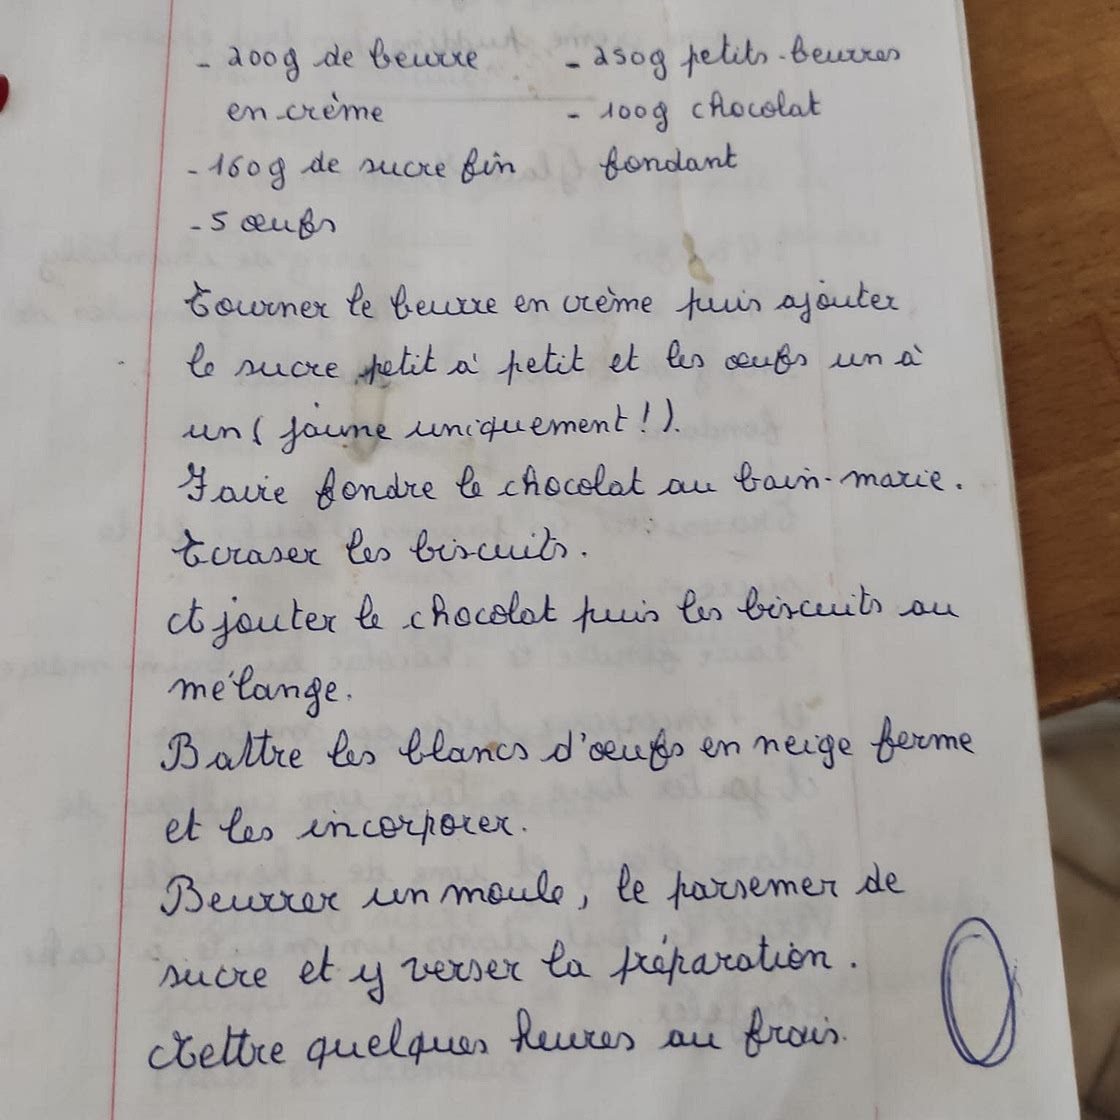 - 200g de beurre
en crème
- 160g de sucre fin
- 5 œufs
- 250g petits-beurres
- 100g chocolat
fondant
Tourner le beurre en crème puis ajouter
le sucre petit à petit et les œufs un à
un ( jaune uniquement ! ).
Faire fondre le chocolat au bain-marie.
Ecraser les biscuits.
Ajouter le chocolat puis les biscuits au
mélange.
Battre les blancs d'œufs en neige ferme
et les incorporer.
Beurrer un moule, le parsemer de
sucre et y verser la préparation.
Mettre quelques heures au frais.